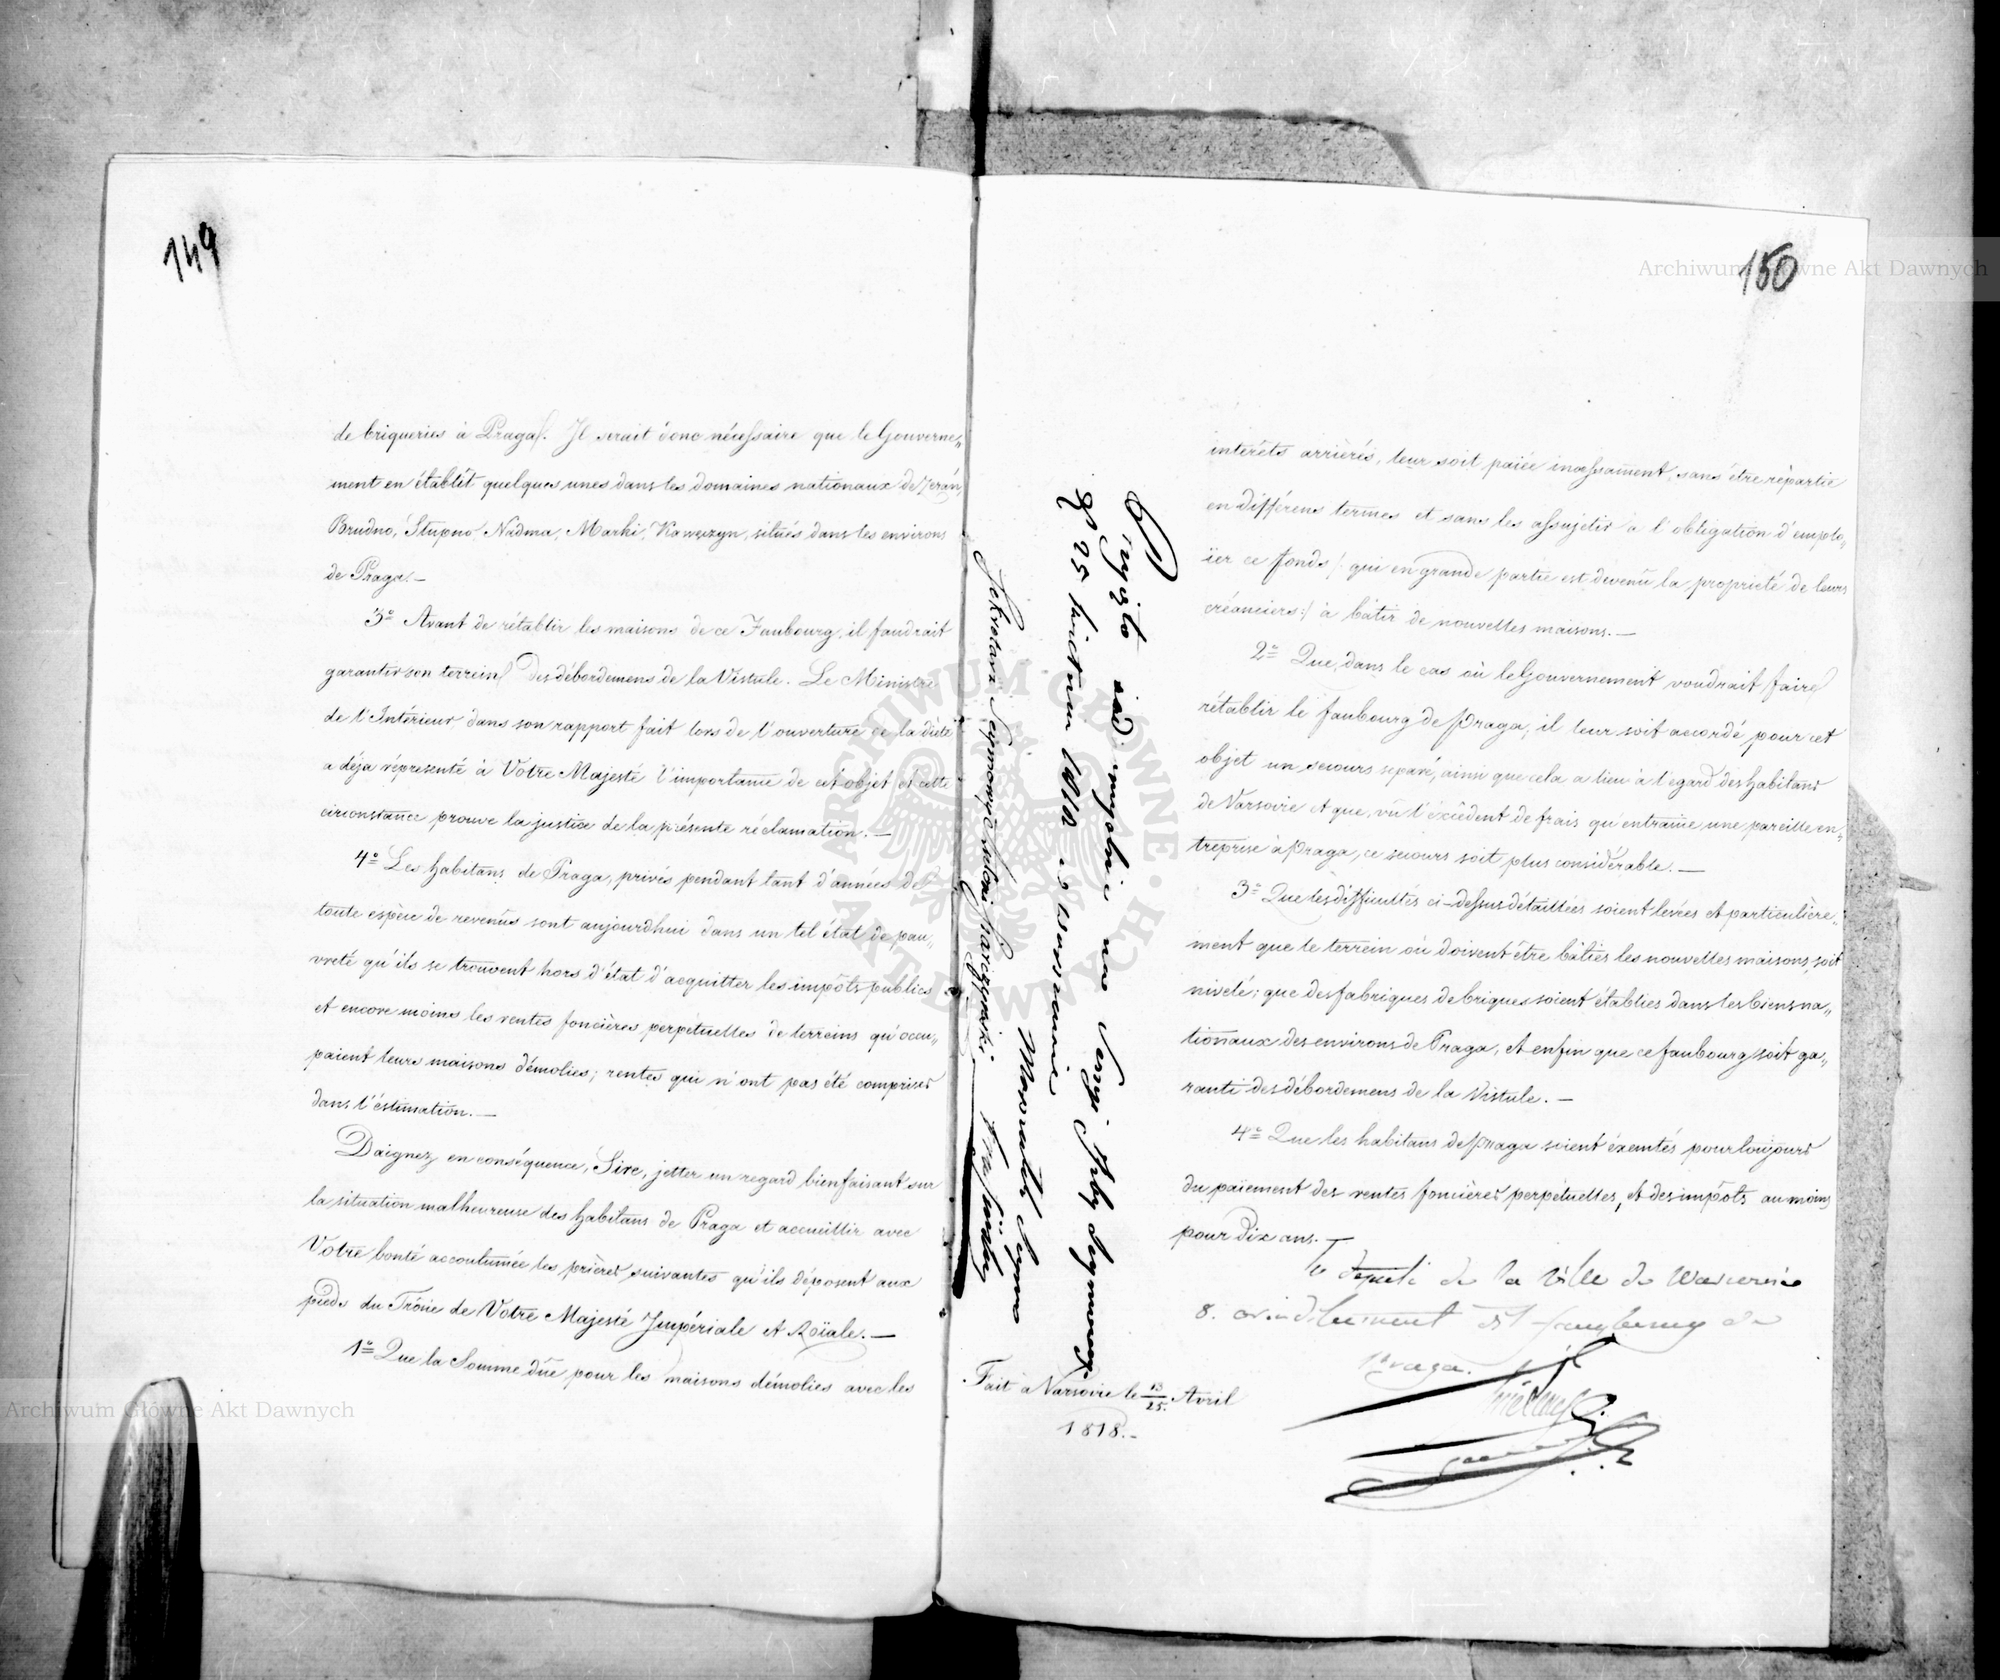 149
de briqueries à Praga/. Il serait donc nécessaire que le Gouverne„
ment en établît quelques unes dans les domaines nationaux de Żerań,
Brudno, Stupno, Nadma, Marki, Kawęczyn, situés dans les environs
de Praga.—
3º Avant de rétablir les maisons de ce Faubourg, il faudrait
garantir son terrein des débordemens de la Vistule. Le Ministre
de l'Intérieur dans son rapport fait lors de l'ouverture de la diète
a déja réprésenté à Votre Majesté l'importance de cet objet et cette
circonstance prouve la justice de la présente réclamation.—
4º Les habitans de Praga, privés pendant tant d'années de
toute espèce de revenus sont aujourdhui dans un tel état de pau„
vreté qu'ils se trouvent hors d'état d'acquitter les impôts publics
et encore moins les rentes foncières perpétuelles de terreins qu'occu„
paient leurs maisons démolies; rentes qui n'ont pas été comprises
dans l'éstimation.—
Daignez en conséquence, Sire, jetter un regard bienfaisant sur
la situation malheureuse des habitans de Praga et accueillir avec
Votre bonté accoutumée les prières suivantes qu'ils déposent aux
pieds du Trône de Votre Majesté Impériale et Roïale.—
1º Que la Somme dûe pour les maisons démolies avec les
150
intérêts arriérés, leur soit païée incessament, sans être répartie
en différens termes et sans les assujetir à l'obligation d'emplo„
ïer ce fonds /: qui en grande partie est devenû la proprieté de leurs
créanciers :/ à bâtir de nouvelles maisons.—
2º Que, dans le cas où le Gouvernement voudrait faire
rétablir le faubourg de Praga, il leur soit accordé pour cet
objet un secours separé, ainsi que cela a lieu à l'egard des habitans
de Varsovie et que, vû l'excédent de frais qu'entraine une pareille en„
treprise à Praga, ce secours soit plus considérable.—
3º Que les difficultés ci-dessus détaillées soient levées et particulière„
ment que le terrein où doivent être bâties les nouvelles maisons, soit
nivelé; que des fabriques de briques soient établies dans les biens na„
tionaux des environs de Praga, et enfin que ce faubourg soit ga„
ranti des débordemens de la Vistule.—
4º Que les habitans de Praga soient éxemtés pour toujours
du païement des rentes foncières perpétuelles, et des impôts au moins
pour dix ans.—
le député de la ville de Warsovie
8. arrondissement et faugbourg de
Praga.
Fait à Varsovie le 13/25 Avril
1818.—
Czytało się
25 kwietnia 1818 w Warszawie
Marszałek Seymu
Sekretarz
Archiwum Główne Akt Dawnych
Archiwum Główne Akt Dawnych
ARCHIWUM GŁÓWNE AKT DAWNYCH